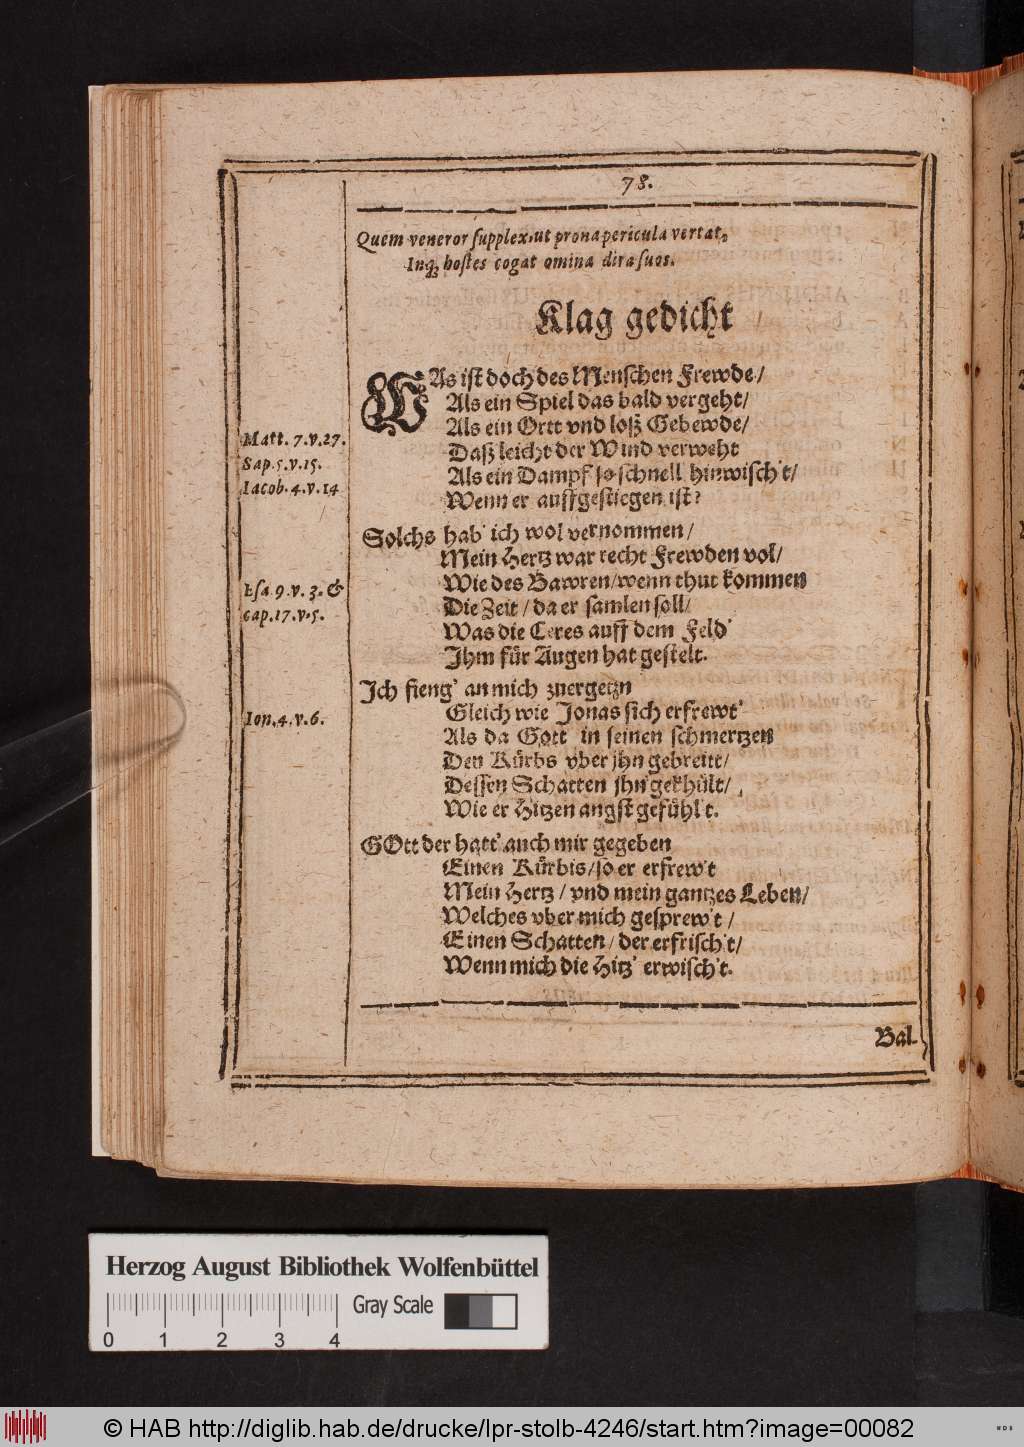 78.
Quem veneror supplex, ut prona pericula vertat,
Inq; hostes cogat omina dira suos.
Klag gedicht /
WAs ist doch des Menschen Frewde /
Als ein Spiel das bald vergeht /
Als ein Ortt vnd loß Gebewde /
Matt. 7. v. 27.
Daß leicht der Wind verweht
Sap. 5. v. 15.
Als ein Dampf so schnell hinwisch't /
Iacob. 4. v. 14
Wenn er auffgestiegen ist?
Solchs hab' ich wol vernommen /
Mein Hertz war recht Frewden vol /
Esa 9. v. 3. &
Wie des Bawren / wenn thut kommen
cap. 17. v. 5.
Die Zeit / da er samlen soll /
Was die Ceres auff dem Feld'
Ihm für Augen hat gestelt.
Ich fieng' an mich zuergetzn
Ion. 4. v. 6.
Gleich wie Jonas sich erfrewt'
Als da Gott in seinen schmertzen
Den Kürbs vber jhn gebreitt /
Dessen Schatten jhn gekhült /
Wie er Hitzen angst gefühl't.
GOtt der hatt' auch mir gegeben
Einen Kürbis / so er erfrew't
Mein Hertz / vnd mein gantzes Leben /
Welches vber mich gesprew't /
Einen Schatten / der erfrisch't /
Wenn mich die Hitz' erwisch't.
Bal-
Herzog August Bibliothek Wolfenbüttel
Gray Scale
0 1 2 3 4
© HAB http://diglib.hab.de/drucke/lpr-stolb-4246/start.htm?image=00082